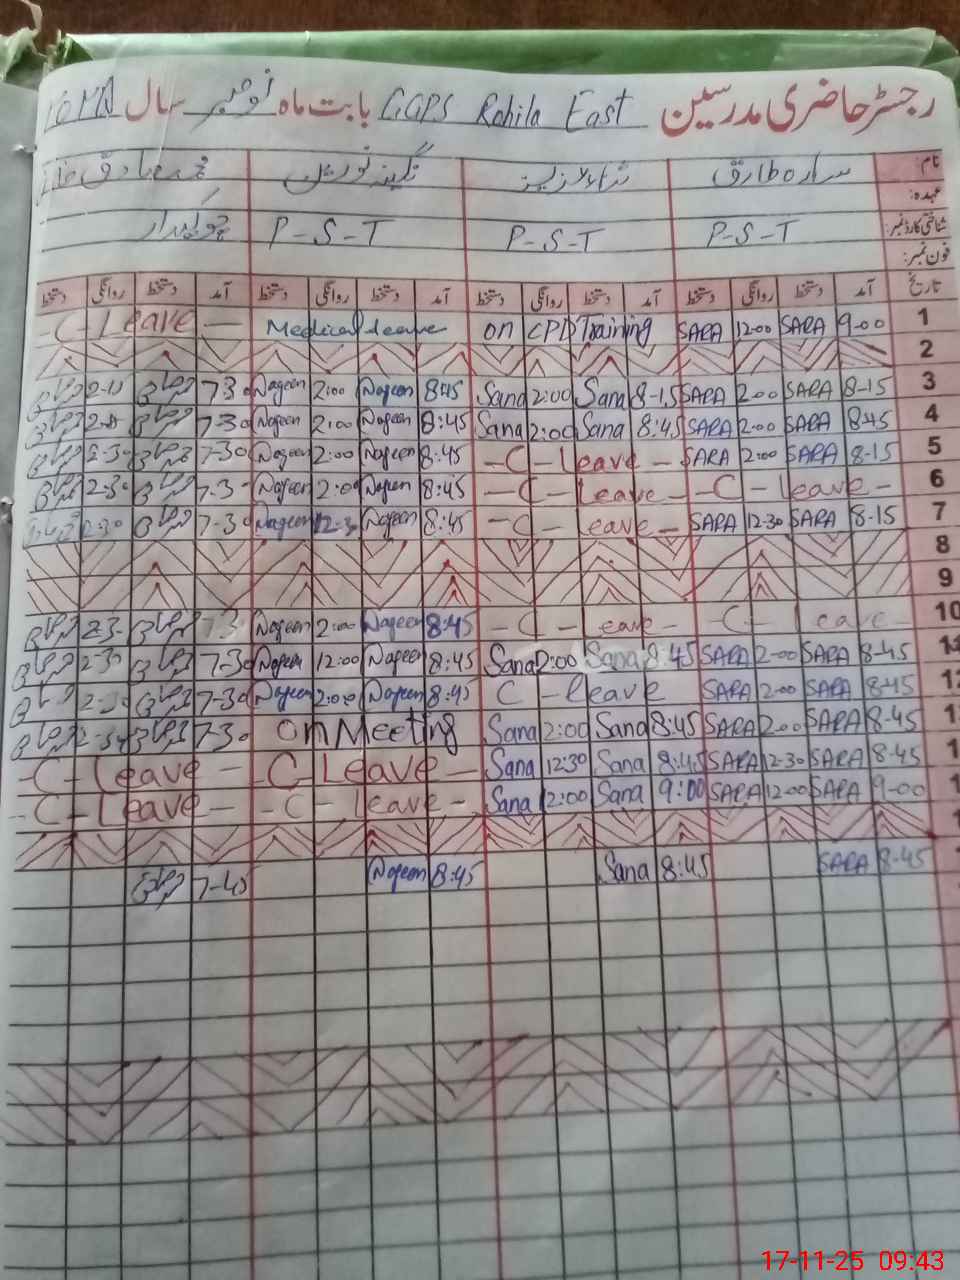 رجسٹر حاضری مدرسین GGPS Rohila East بابت ماہ نومبر سال
نام: سارہ طارق نگینہ نورین محمد صادق
عہدہ:
شناختی کارڈ نمبر: P-S-T P-S-T P-S-T چوکیدار
فون نمبر:
تاریخ آمد دستخط روانگی دستخط آمد دستخط روانگی دستخط آمد دستخط روانگی دستخط آمد دستخط روانگی دستخط
-C-Leave- Medical leave on CPD Training SARA 12-00 SARA 9-00 1
2
7-30 Nageen 2:00 Nageen 8:45 Sana 2:00 Sana 8-15 SARA 2-00 SARA 8-15 3
7-30 Nageen 2:00 Nageen 8:45 Sana 2:00 Sana 8:45 SARA 2-00 SARA 8-45 4
2-30 7-30 Nageen 2:00 Nageen 8:45 -C-leave- SARA 2:00 SARA 8-15 5
2-30 7-3 Nageen 2:00 Nageen 8:45 -C-leave- -C-leave- 6
2-30 7-30 Nageen 12-30 Nageen 8:45 -C-leave- SARA 12-30 SARA 8-15 7
8
9
Nageen 2:00 Nageen 8:45 -C-leave- -C-leave- 10
2-30 7-30 Nageen 12:00 Nageen 8:45 Sana 2:00 Sana 8:45 SARA 2-00 SARA 8-45 11
2-30 7-30 Nageen 2:00 Nageen 8:45 C-leave SARA 2-00 SARA 8-45
7-30 On Meeting Sana 2:00 Sana 8:45 SARA 2-00 SARA 8-45
-C-Leave- -C Leave- Sana 12:30 Sana 8:45 SARA 12-30 SARA 8-45
-C-Leave- -C-leave- Sana 12:00 Sana 9:00 SARA 12-00 SARA 9-00
7-45 Nageen 8:45 Sana 8:45 SARA 8-45
17-11-25 09:43